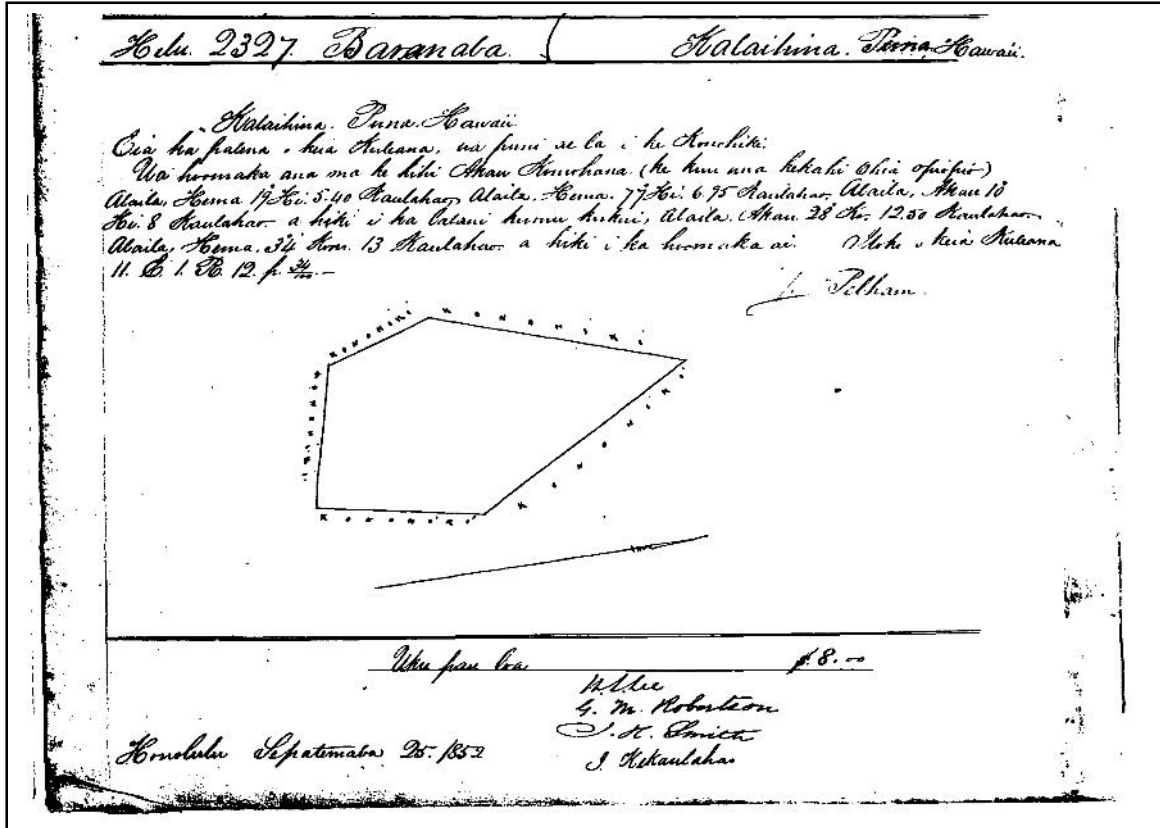 Helu. 2327. Baranaba. Kalaihina. Puna. Hawaii.
Kalaihina. Puna. Hawaii.
Eia ka palena o keia Kuleana, ua puni ae la i ke Konohiki.
Ua hoomaka ana ma ke kihi Akau Komohana (he kuu ana kekahi Ohia opiopio)
Alaila, Hema 19° Hi. 5.40 Kaulahao, Alaila, Hema. 77° Hi. 6.95 Kaulahao, Alaila, Akau 10°
Hi. 8 Kaulahao a hiki i ka lalani kumu kukui, Alaila. Akau. 28° Ko. 12.50 Kaulahao
Alaila, Hema. 34° Kom. 13 Kaulahao a hiki i ka hoomaka ai. Iloko o keia Kuleana
11. E. 1. R. 12. p. 34/100
J. Pelham.
KONOHIKI
KONOHIKI
KONOHIKI
KONOHIKI
KONOHIKI
Uku pau loa $8.00
W. L. Lee
G. M. Robertson
J. H. Smith
Honolulu Sepatemaba 25. 1852
J. Kekaulahao